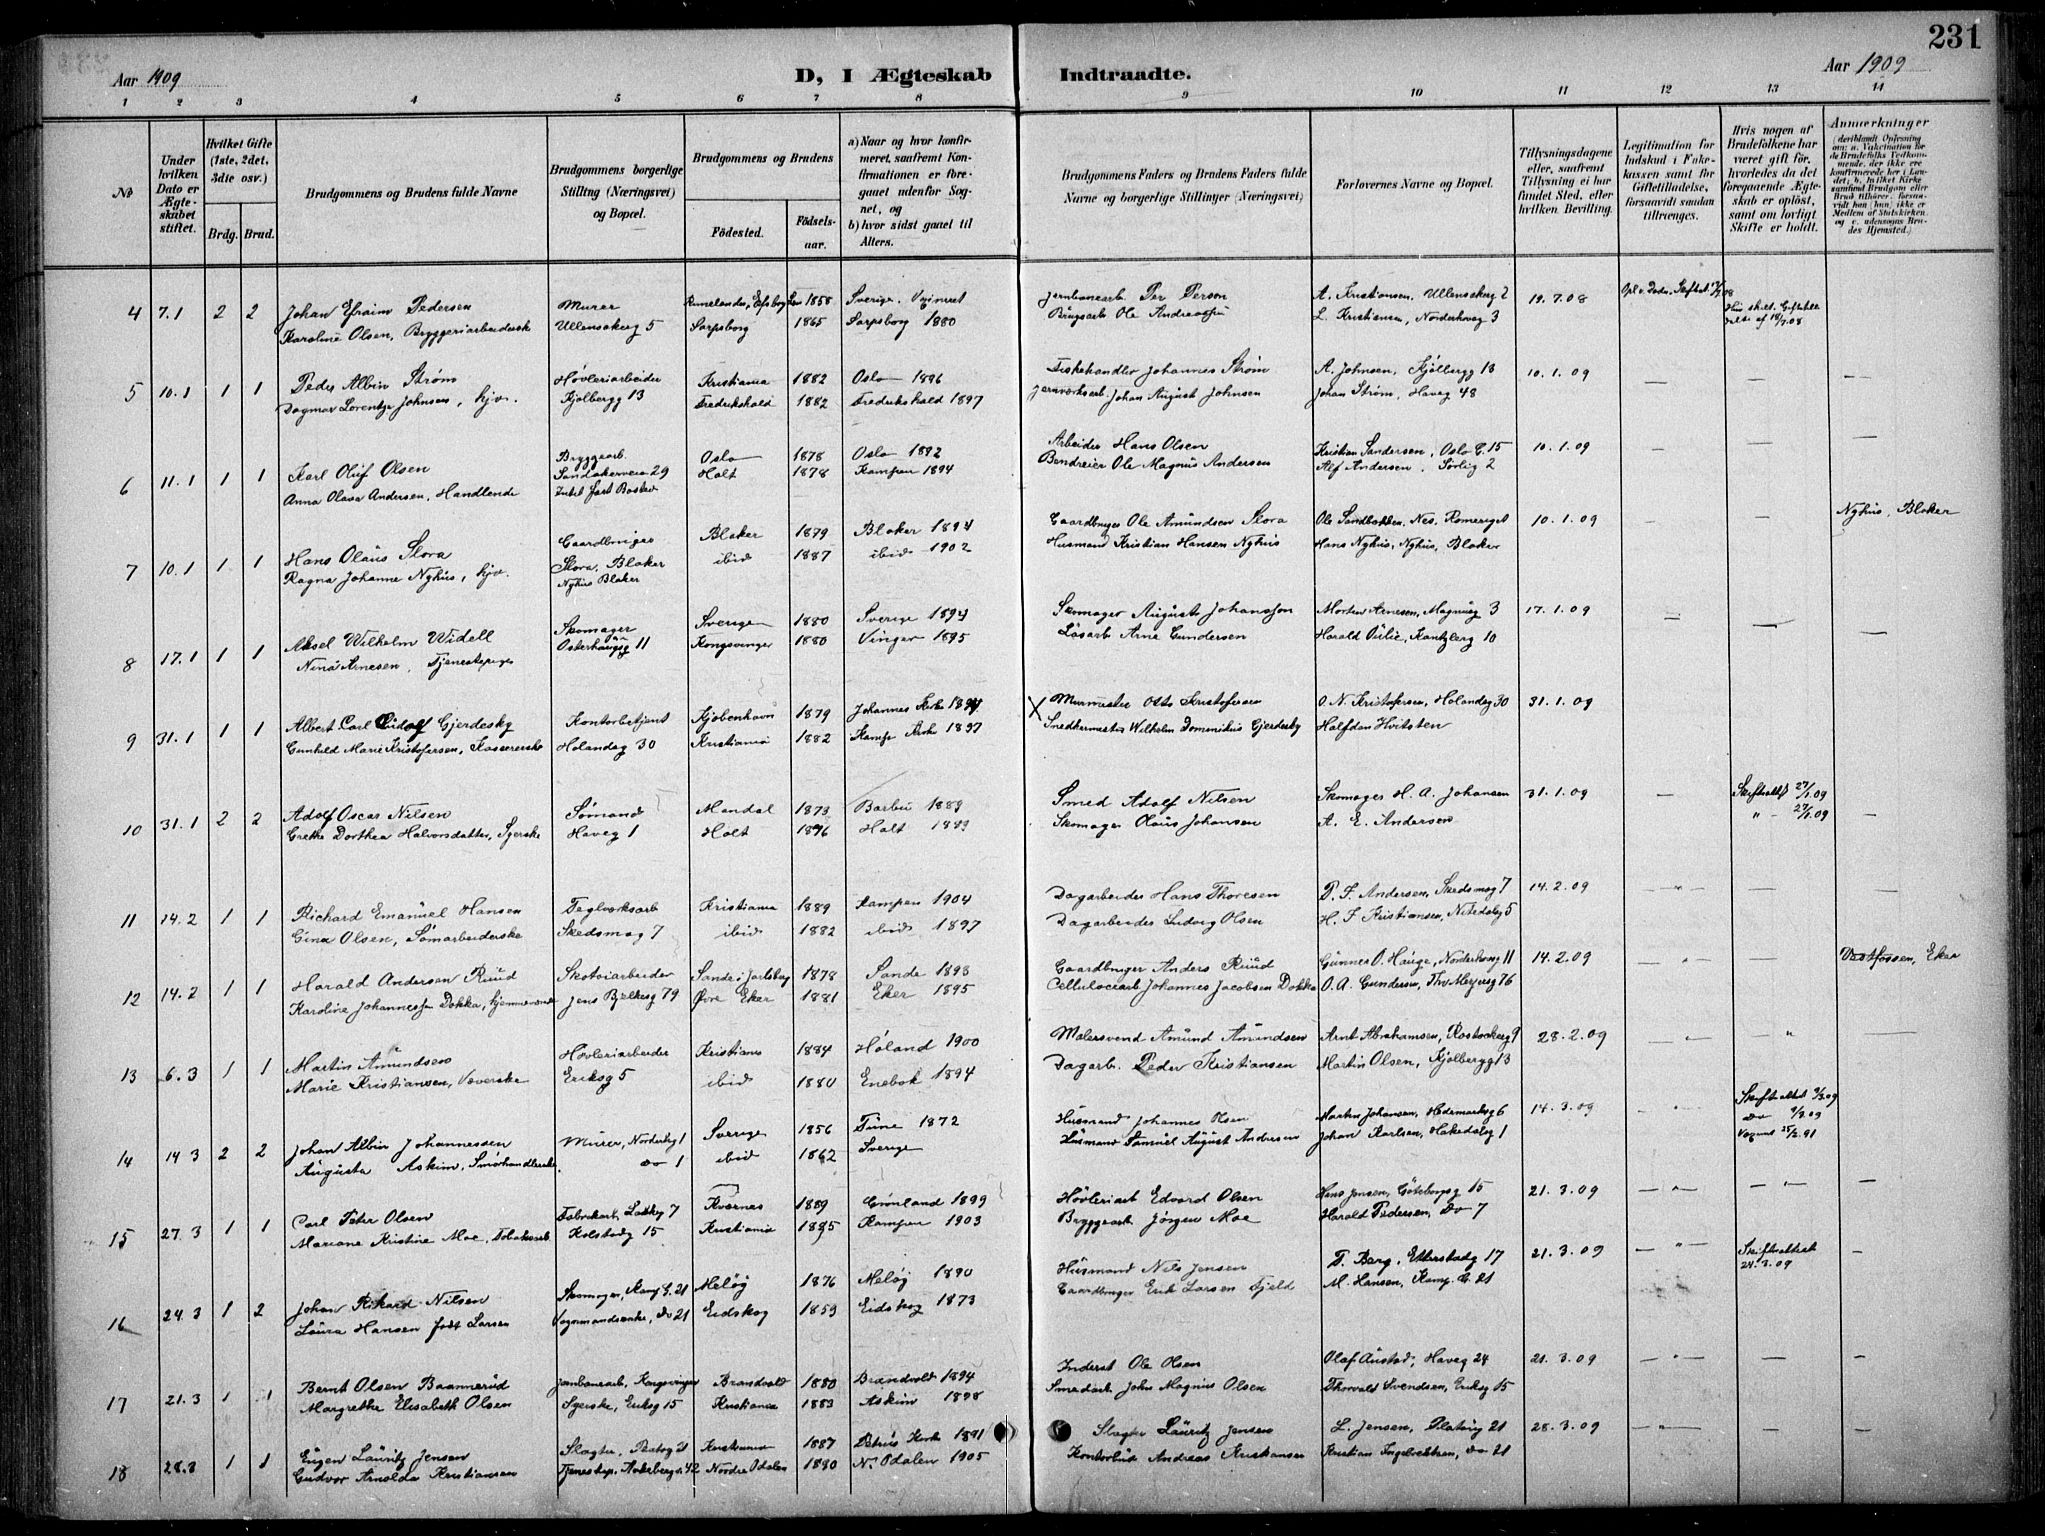 231
Aar 1909
D, I Ægteskab Indtraadte.
Aar 1909
1 2 3 4 5 6 7 8 9 10 11 12 13 14
No
Under hvilken Dato er Ægteskabet stiftet.
Hvilket Gifte (1ste, 2det, 3die osv.)
Brdg. Brud.
Brudgommens og Brudens fulde Navne
Brudgommens borgerlige Stilling (Næringsvei) og Bopæl.
Brudgommens og Brudens
Fødested.
Fødselsaar.
a) Naar og hvor konfirmeret, saafremt Konfirmationen er foregaaet udenfor Sognet, og
b) hvor sidst gaaet til Alters.
Brudgommens Faders og Brudens Faders fulde Navne og borgerlige Stillinger (Næringsvei)
Forlovernes Navne og Bopæl.
Tillysningsdagene eller, saafremt Tillysning ei har fundet Sted, efter hvilken Bevilling.
Legitimation for Indskud i Enkekassen samt for Giftetilladelse, forsaavidt saadan tiltrænges.
Hvis nogen af Brudefolkene har været gift før, hvorledes da det foregaaende Ægteskab er opløst, samt om lovligt Skifte er holdt.
Anmærkninger
4 7.1 2 2 Johan Efraim Pedersen Murer 1858 Sverige Per Person A. Kristiansen, Ullensakerg 2 19.7.08
Karoline Olsen, Ullensakerg 5 Sarpsborg 1865 Sarpsborg 1880 Ole Andreassen L. Kristiansen, Norderhovg 3
5 10.1 1 1 Peder Albin Strøm Høvleriarbeider Kristiania 1882 Oslo 1896 Fiskehandler Johannes Strøm A. Johnsen, Kjølbergg 13 10.1.09
Dagmar Lorentze Johnsen, hjv. Kjølbergg 13 Fredrikshald 1882 Fredrikshald 1897 Johan August Johnsen Johan Strøm, Haveg 48
6 11.1 1 1 Karl Oluf Olsen Bryggearb. Oslo 1878 Oslo 1892 Arbeider Hans Olsen Kristian Sandersen, Oslo G. 15 10.1.09
Anna Olava Andersen, Handlende Sandakerveien 29 Holt 1878 Kampen 1894 Bendreier Ole Magnus Andersen Alf Andersen, Sørlig 2
7 10.1 1 1 Hans Olaus Slora Gaardbruger Blaker 1879 Blaker 1894 Gaardbruger Ole Amundsen Slora Ole Sandbakken, Nes, Romeriget 10.1.09 Nyhus, Blaker
Ragna Johanne Nyhus, hjv. Slora, Blaker ibid 1887 ibid 1902 Husmand Kristian Hansen Nyhus Hans Nyhus, Nyhus, Blaker
Nyhus Blaker
8 17.1 1 1 Aksel Wilhelm Widell Skomager Sverige 1880 Sverige 1894 Skomager August Johansson Morten Arnesen, Magnusg 3 17.1.09
Nina Arnesen, Tjenestepige Osterhaugsg 11 Kongsvinger 1880 Vinger 1895 Løsarb Arne Gundersen Harald Øulie, Kantzlerg 10
9 31.1 1 1 Albert Carl Rudolf Gjerdesky Kontorbetjent Kjøbenhavn 1879 Johannes Kirke X Murmester Otto Kristofersen O. N. Kristofersen, Holandsg 30 31.1.09
Gunhild Marie Kristofersen, Kassererske Holandsg 30 Kristiania 1882 Kamp. Kirke 1897 Smedhermester Wilhelm Dominikus Gjerdesky Halfdan Hvitsten
10 31.1 2 2 Adolf Oscar Nilsen Sømand Mandal 1873 Barbu 1889 Smed Adolf Nilsen Skomager H. A. Johansen 31.1.09 Skifteholdt 27/1.09
Grethe Dorthea Halvorsdatter, Syerske Haveg 1 Holt Holt Skomager Olaus Johansen A. E. Andersen " 27/1.09
11 14.2 1 1 Richard Emanuel Hansen Teglverksarb Kristiania 1889 Kampen 1904 Dagarbeider Hans Thoresen P. F. Andersen, Skedsmog 7 14.2.09
Gina Olsen, Sømarbeiderske Skedsmog 7 ibid 1882 ibid 1897 Dagarbeider Ludvig Olsen H. F. Kristiansen, Nitedalsg 5
12 14.2 1 1 Harald Andersen Ruud Skotøiarbeider Sande i Jarlsberg 1878 Sande 1893 Gaardbruger Anders Ruud Gunner O. Hauge, Norderhovg 11 14.2.09 Vestfossen, Eker
Karoline Johannesen Dokka, hjemmeværende Jens Bjelkesg 79 Øvre Eker 1881 Eker 1895 Cellulosearb Johannes Jacobsen Dokka O. A. Gundersen, Thv Meyersg 76
13 6.3 1 1 Martin Amundsen Høvleriarbeider Kristiania 1884 Høland 1900 Malersvend Amund Amundsen Arnt Abrahamsen, Rostockerg 9 28.2.09
Marie Kristiansen, Væverske Eriksg 5 ibid 1880 Enebak 1894 Dagarb. Peder Kristiansen Martin Olsen, Kjølbergg 13
14 14.3 2 2 Johan Albin Johannessen Murer, Norderhg 1 Sverige 1856 Tune 1872 Husmand Johannes Olsen Martin Johansen, Hedemarksg 6 14.3.09 Skifteholdt 9/3.09
Augusta Askim, Smørhandlerske Do 1 ibid 1862 Sverige Husmand Samuel August Andersen Johan Karlsen, Hakedalsg 1 Do 9/3.09
15 27.3 1 1 Carl Peter Olsen Fabrikarb, Kværnes 1889 Grønland 1899 Høvleriarb Edvard Olsen Hans Jensen, Göteborgsg 15 21.3.09
Mariane Kristine Moe, Tobaksarb Kolstadg 15 Kristiania 1885 Kampen 1903 Bryggearb Jørgen Moe Harald Pedersen, Do 7
16 24.3 1 2 Johan Rikard Nilsen Skomager, Kamp. G. 21 Meløy 1876 Meløj 1890 Husmand Nils Jensen T. Berg, Etterstadg 17 21.3.09 Skifteholdt 24.3.09
Laura Hansen født Larsen Vognmandsenke, Do 21 Eidskog 1859 Eidskog 1873 Gaardbruger Erik Larsen Fjeld M. Hansen, Kamp. G. 21
17 21.3 1 1 Bernt Olsen Baannerud Jernbanearb, Kongsvinger Brandvold 1880 Brandvold 1894 Inderst Ole Olsen Olaf Austad, Haveg 24 21.3.09
Margrethe Elisabeth Olsen Syerske, Eriksg 15 Kristiania 1883 Askim 1898 Smedarb John Magnus Olsen Thorvald Svendsen, Eriksg 15
18 28.3 1 1 Eugen Lauritz Jensen Slagter, Kristiania 1887 Petrus Kirke 1891 Slagter Lauritz Jensen L. Jensen, 21 28.3.09
Gudvor Arnolda Kristiansen Tjenestep. Nordre Odalen 1880 N. Odalen 1905 Kontorbud Andreas Kristiansen Kristian Ingebrektsen, Do 21